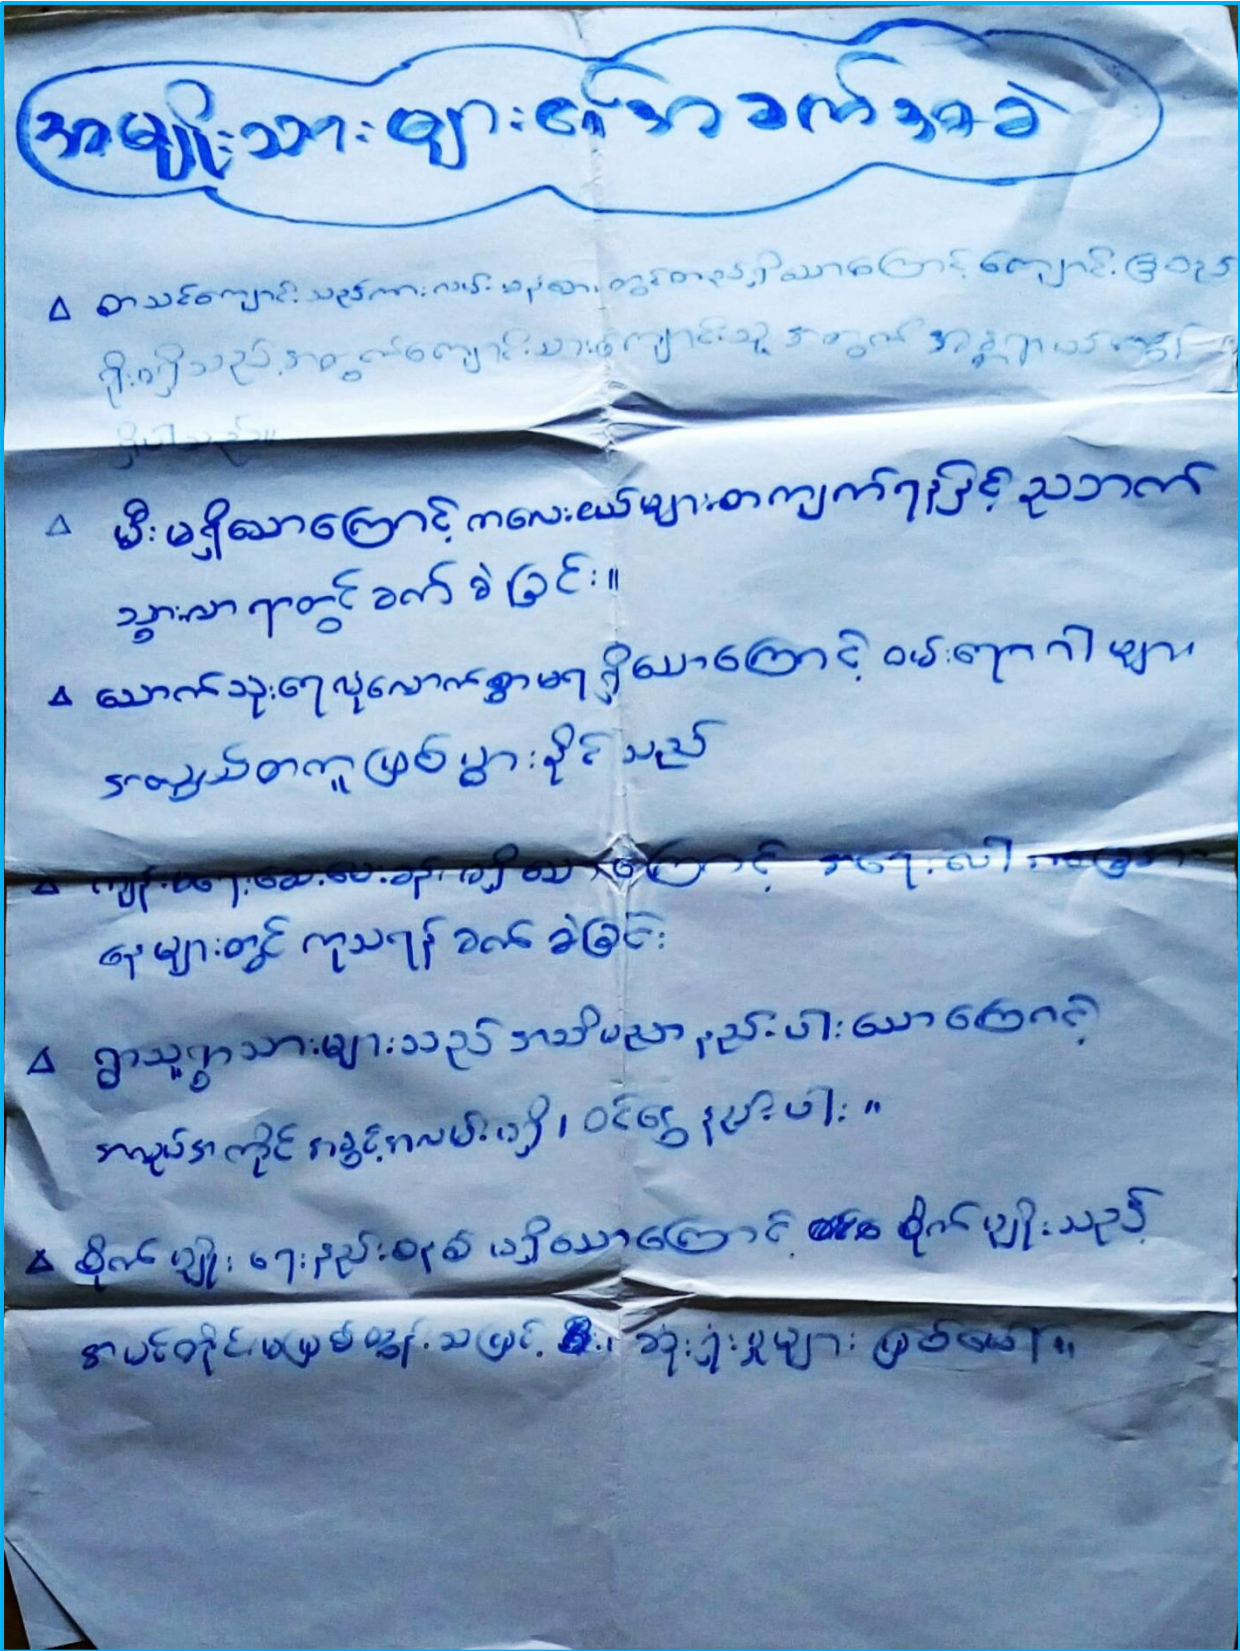 အမျိုးသားများ၏အခက်အခဲ
△ စာသင်ကျောင်း သည်ကားလမ်း ဘေးတွင်တည်ရှိသောကြောင့် ကျောင်း ခြံစည်း
ရိုးမရှိသည့်အတွက်ကျောင်းသားကျောင်းသူ အတွက် အန္တရာယ်
ရှိပါသည်။
△ မီးမရှိသောကြောင့် ကလေးငယ်များစာကျက်ရန်နှင့် ညဘက်
သွားလာရာတွင် ခက်ခဲခြင်း။
△ သောက်သုံးရေလုံလောက်စွာမရရှိသောကြောင့် ဝမ်းရောဂါများ
အလွယ်တကူဖြစ်ပွားနိုင်သည်
△ ကျန်းမာရေးဆေးပေးခန်းမရှိသောကြောင့် အရေးပေါ်အခြေအ
နေများတွင် ကုသရန် ခက်ခဲခြင်း
△ ရွာသူရွာသားများသည် အသိပညာနည်းပါးသောကြောင့်
အလုပ်အကိုင်အခွင့်အလမ်းမရှိ၊ ဝင်ငွေနည်းပါး။
△ စိုက်ပျိုးရေးနည်းစနစ်မရှိသောကြောင့် စိုက်ပျိုးသည့်
အပင်တိုင်းမဖြစ်ထွန်းသဖြင့် ဆုံးရှုံးမှုများ ဖြစ်ပေါ်။